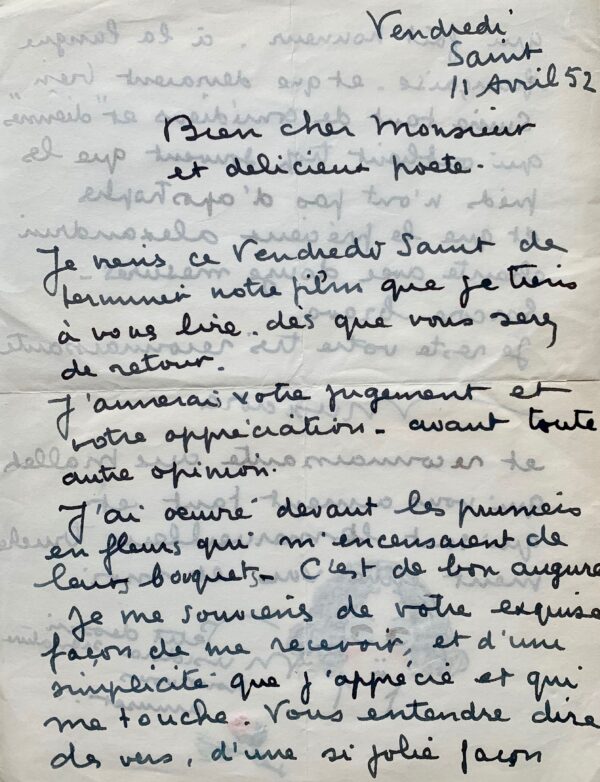 Vendredi
Saint
11 Avril 52
Bien cher Monsieur
et délicieux poète.
Je viens ce Vendredi Saint de
terminer notre film que je tiens
à vous lire. dès que vous serez
de retour.
J'aimerai votre jugement et
votre appréciation - avant toute
autre opinion.
J'ai oeuvré devant les pruniers
en fleurs qui m'encensaient de
leurs bouquets - C'est de bon augure
Je me souviens de votre exquise
façon de me recevoir, et d'une
simplicité que j'apprécie et qui
me touche. Vous entendre dire
des vers, d'une si jolie façon